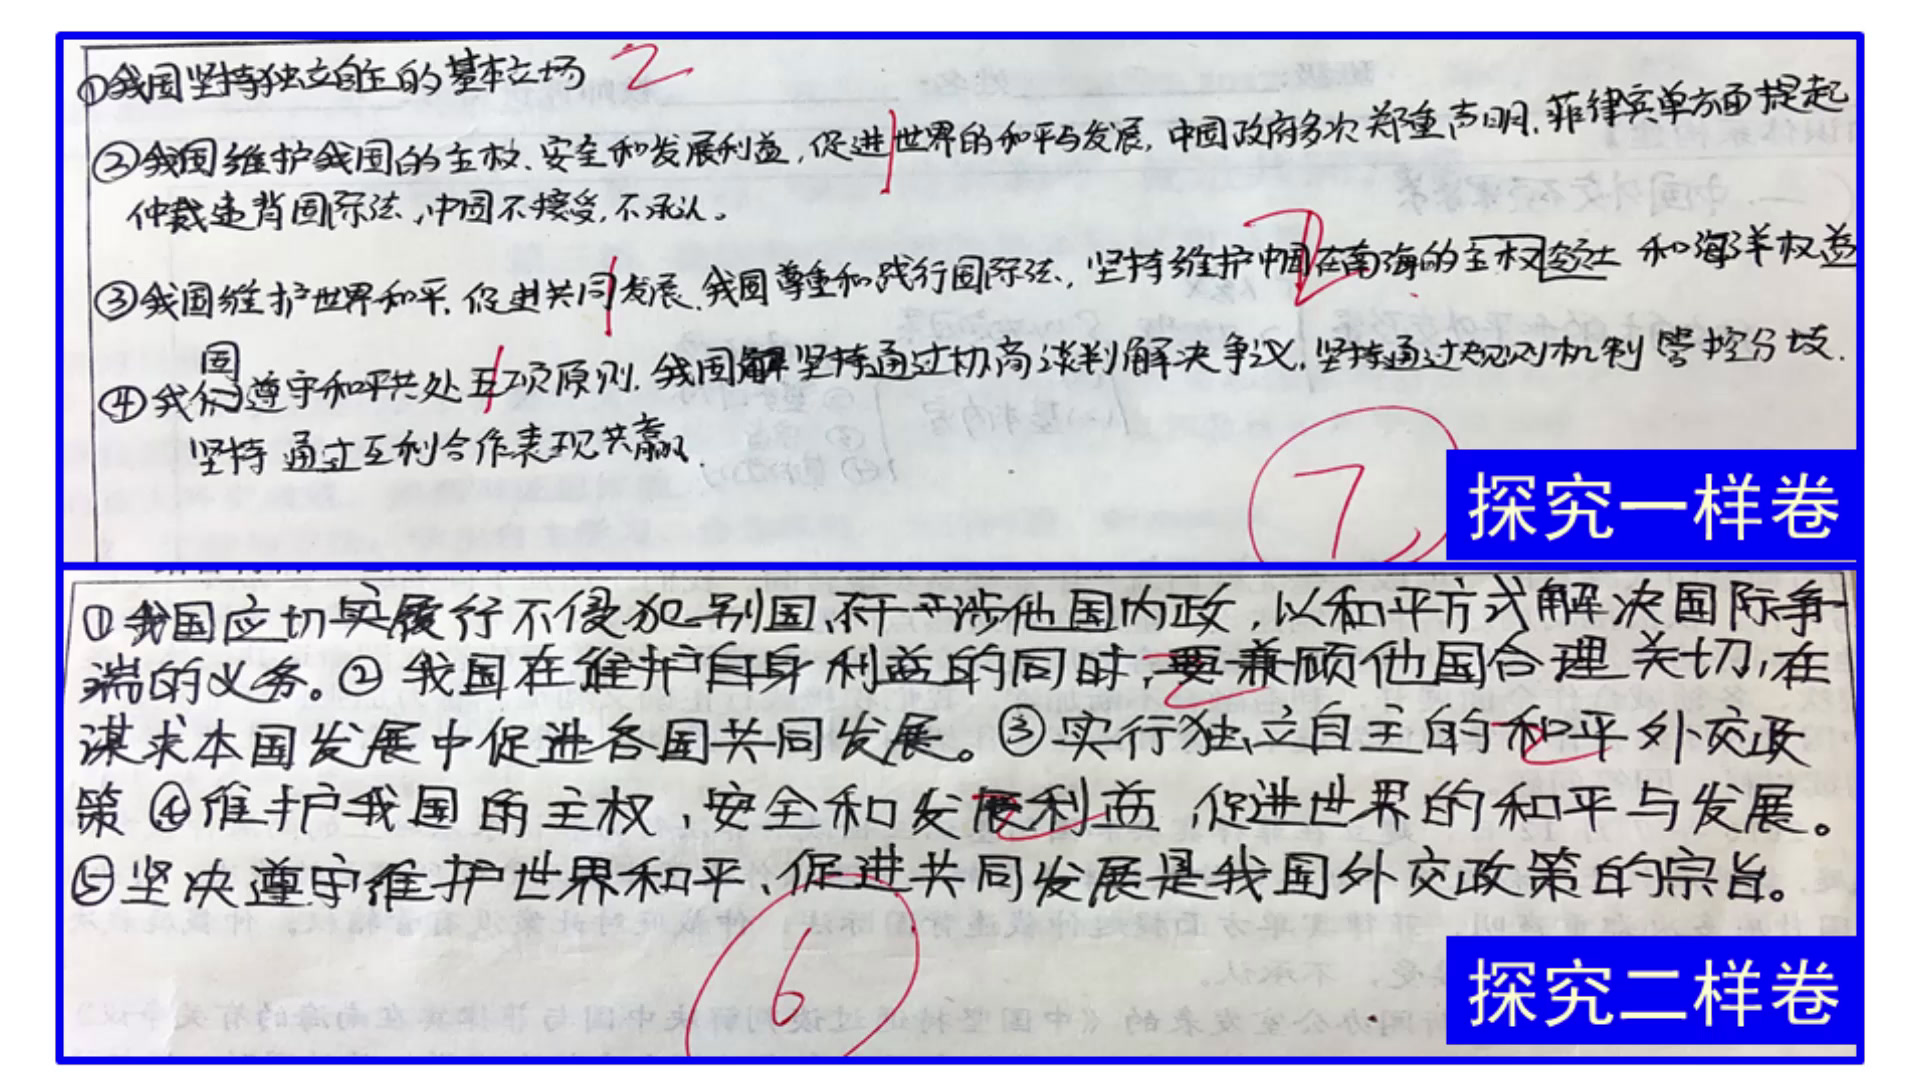 ①我国坚持独立自主的基本立场 2
②我国维护我国的主权、安全和发展利益,促进世界的和平与发展,中国政府多次郑重声明,菲律宾单方面提起
仲裁违背国际法,中国不接受,不承认。
③我国维护世界和平,促进共同发展,我国尊重和践行国际法,坚持维护中国在南海的主权 和海洋权益
国
④我们遵守和平共处五项原则,我国解坚持通过协商谈判解决争议,坚持通过规则机制管控分歧.
坚持通过互利合作表现共赢.
7
探究一样卷
①我国应切实履行不侵犯别国,不干涉他国内政,以和平方式解决国际争
端的义务。②我国在维护自身利益的同时,要兼顾他国合理关切,在
谋求本国发展中促进各国共同发展。③实行独立自主的和平外交政
策④维护我国的主权,安全和发展利益,促进世界的和平与发展。
⑤坚决遵守维护世界和平,促进共同发展是我国外交政策的宗旨。
6
探究二样卷